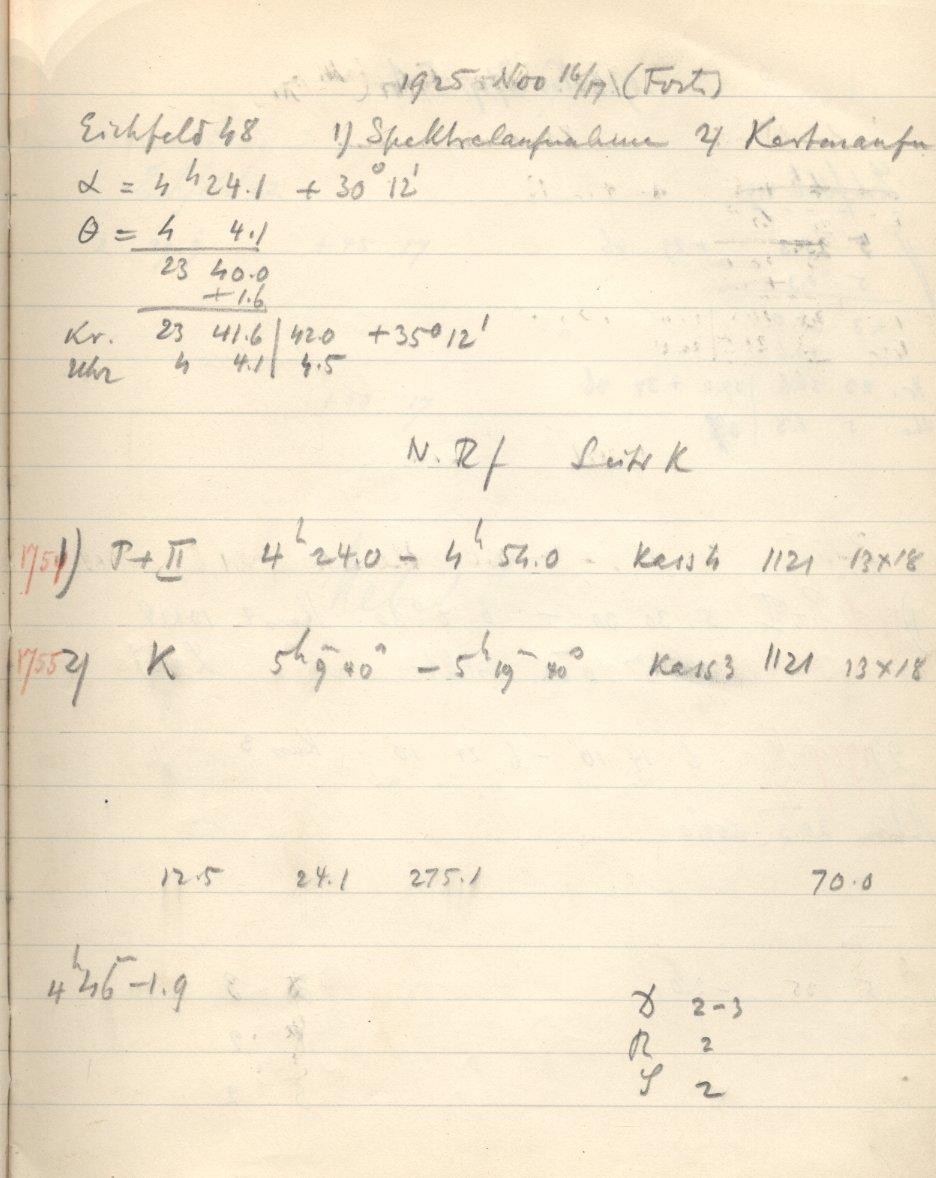 1925 Nov 16/17 (Forts)
Eichfeld 48 1) Spektralaufnahme 2) Kartenaufn
α = 4h 24.1 + 30° 12'
θ = 4 4.1
23 40.0
+1.6
Kr. 23 41.6 | 42.0 + 35° 12'
Uhr 4 4.1 | 4.5
N. Rf Seite K
1754 1) P + II 4h 24.0 - 4h 54.0 Kass 4 1121 13×18
1755 2) K 5h 9m 40s - 5h 19m 40s Kass 3 1121 13×18
12.5 24.1 275.1 70.0
4h 46m -1.9
D 2-3
R 2
S 2